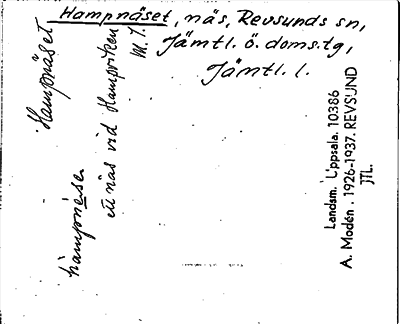 Hampnäset, näs, Revsunds sn,
Jämtl. ö. doms.tg,
Jämtl. l.
Hampnäset
hampnése
ett näs vid Hampviken
M. 1.
Landsm. Uppsala. 10386
A. Modén. 1926-1937. REVSUND
JTL.